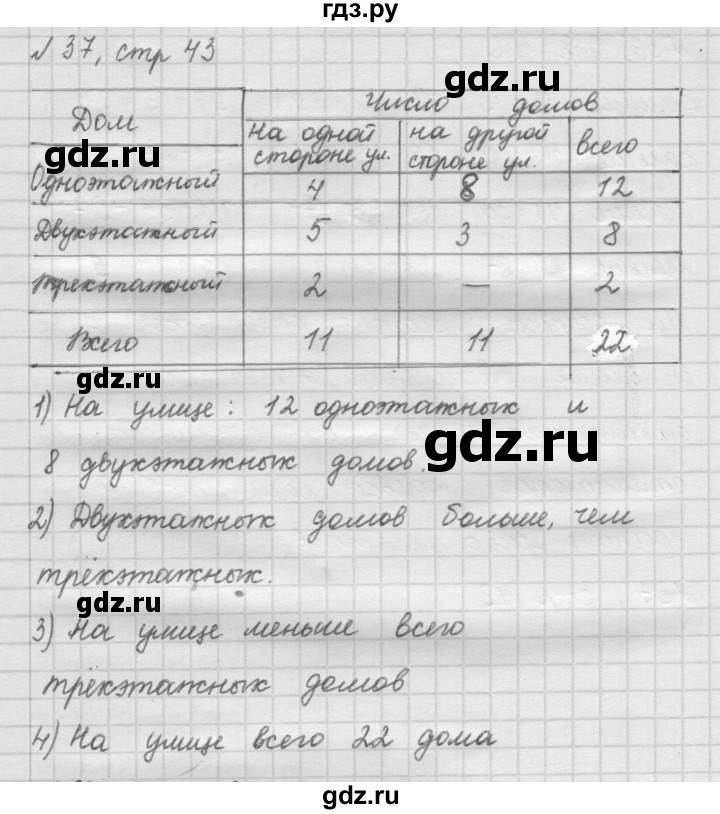 гдз.ру
№ 37, стр 43
Дом
Число домов
На одной стороне ул.
на другой стороне ул.
всего
Одноэтажный 4 8 12
Двухэтажный 5 3 8
трехэтажный 2 — 2
Всего 11 11 22
1) На улице: 12 одноэтажных и
8 двухэтажных домов.
2) Двухэтажных домов больше, чем
трёхэтажных.
3) На улице меньше всего
трёхэтажных домов
4) На улице всего 22 дома
gdz.ru
gdz.ru
gdz.ru
gdz.ru
gdz.ru
gdz.ru
gdz.ru